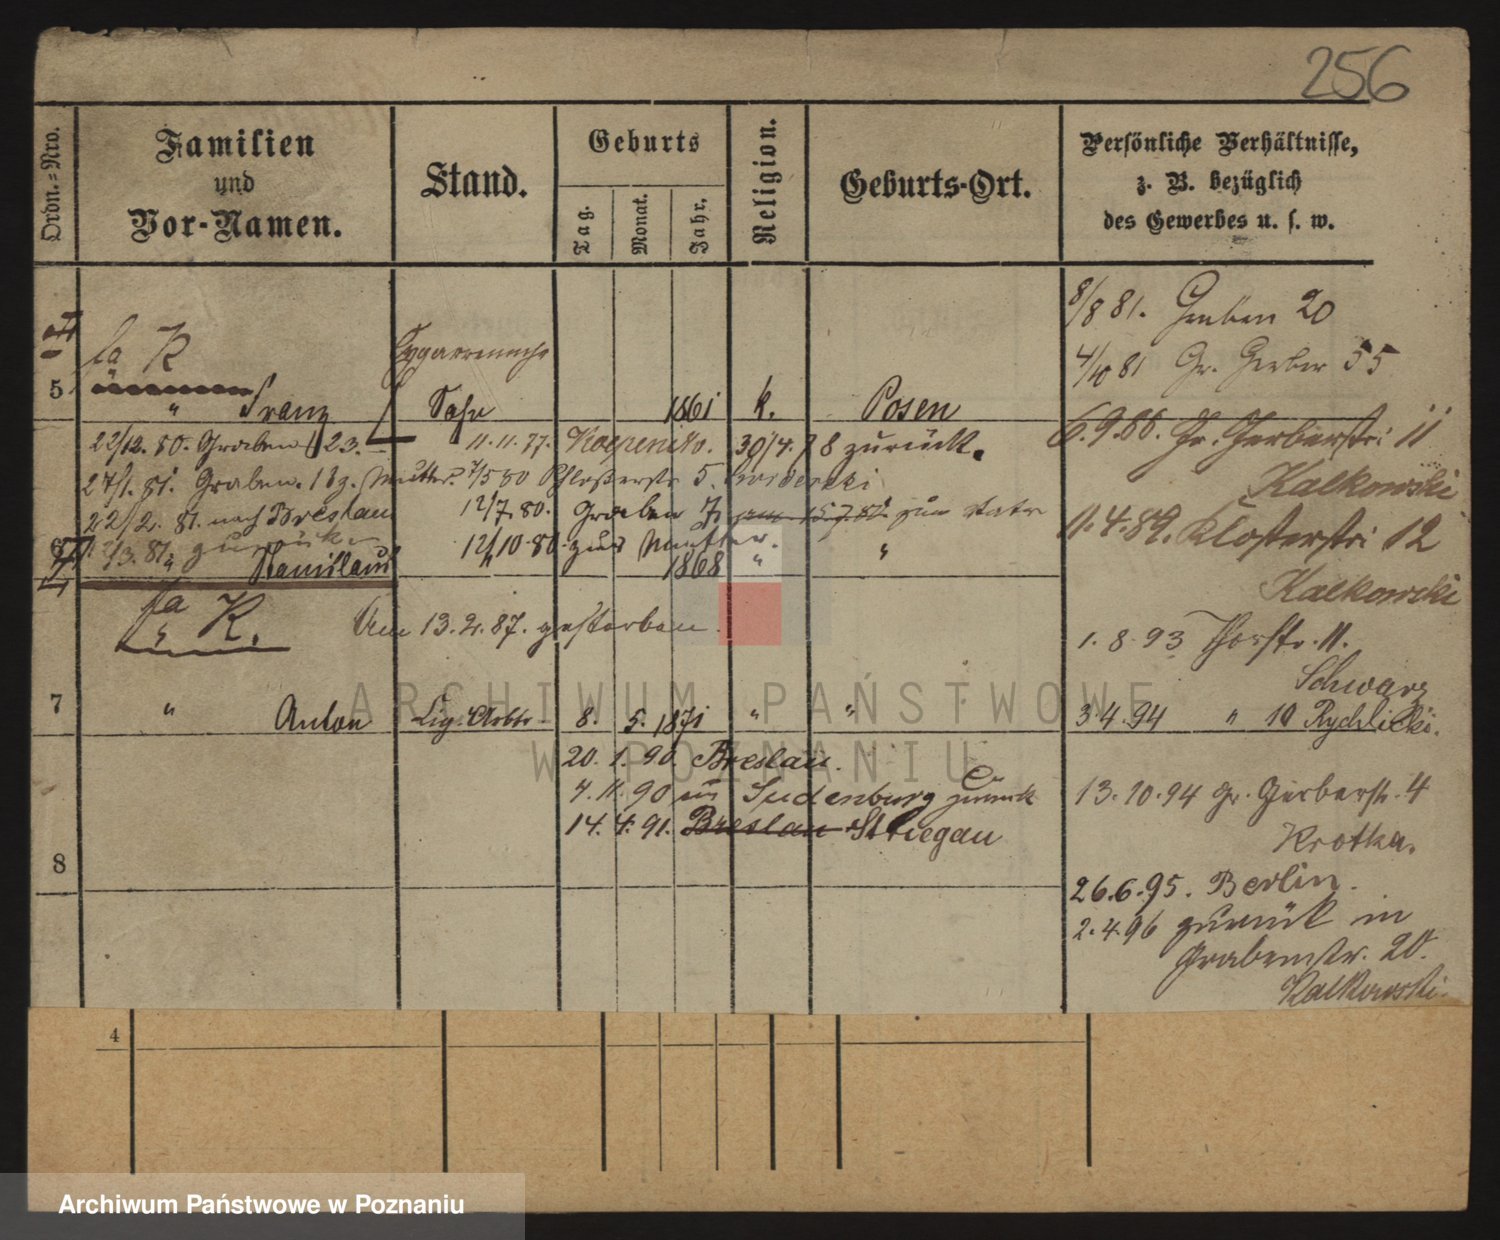 256
Ordn.=Nro.
Familien
und
Vor-Namen.
Stand.
Geburts
Tag.
Monat.
Jahr.
Religion.
Geburts-Ort.
Persönliche Verhältnisse,
z. B. bezüglich
des Gewerbes u. s. w.
8/8 81. Graben 20
4/10 81 Gr. Gerber 55
fa K
5 " Franz Sohn 1861 k. Posen
22/12. 80. Graben 23. 11.11.77. Koepenick. 30/4.78 zurück.
6.9.86. Gr. Gerberstr: 11
Kalkowski
27/1. 81. Graben. 18 g. Mutter. 7/5 80 Schloßerstr 5.
22/2. 81. nach Breslau 12/7.80. Graben 7. 15.7.81. zum Vater
/3. 81. zurück 12/10.80. zur Mutter.
11.4.89. Klosterstr: 12
Kalkowski
6 " Stanislaus 1868 " "
fa K. Am 13.2.87. gestorben.
1.8.93 Thorstr. 11.
Schwarz
7 " Anton Cig. Arbtr 8. 5. 1871 " "
3.4.94 " 10 Rychlicki.
20.1.90. Breslau.
4.11.90 aus Sudenburg zurück
14.4.91. Breslau Striegau
13.10.94 gr. Gerberstr. 4
Krotka.
8
26.6.95. Berlin.
2.4.96 zurück in
Grabenstr. 20.
Kalkowski.
4
ARCHIWUM PAŃSTWOWE
W POZNANIU
Archiwum Państwowe w Poznaniu